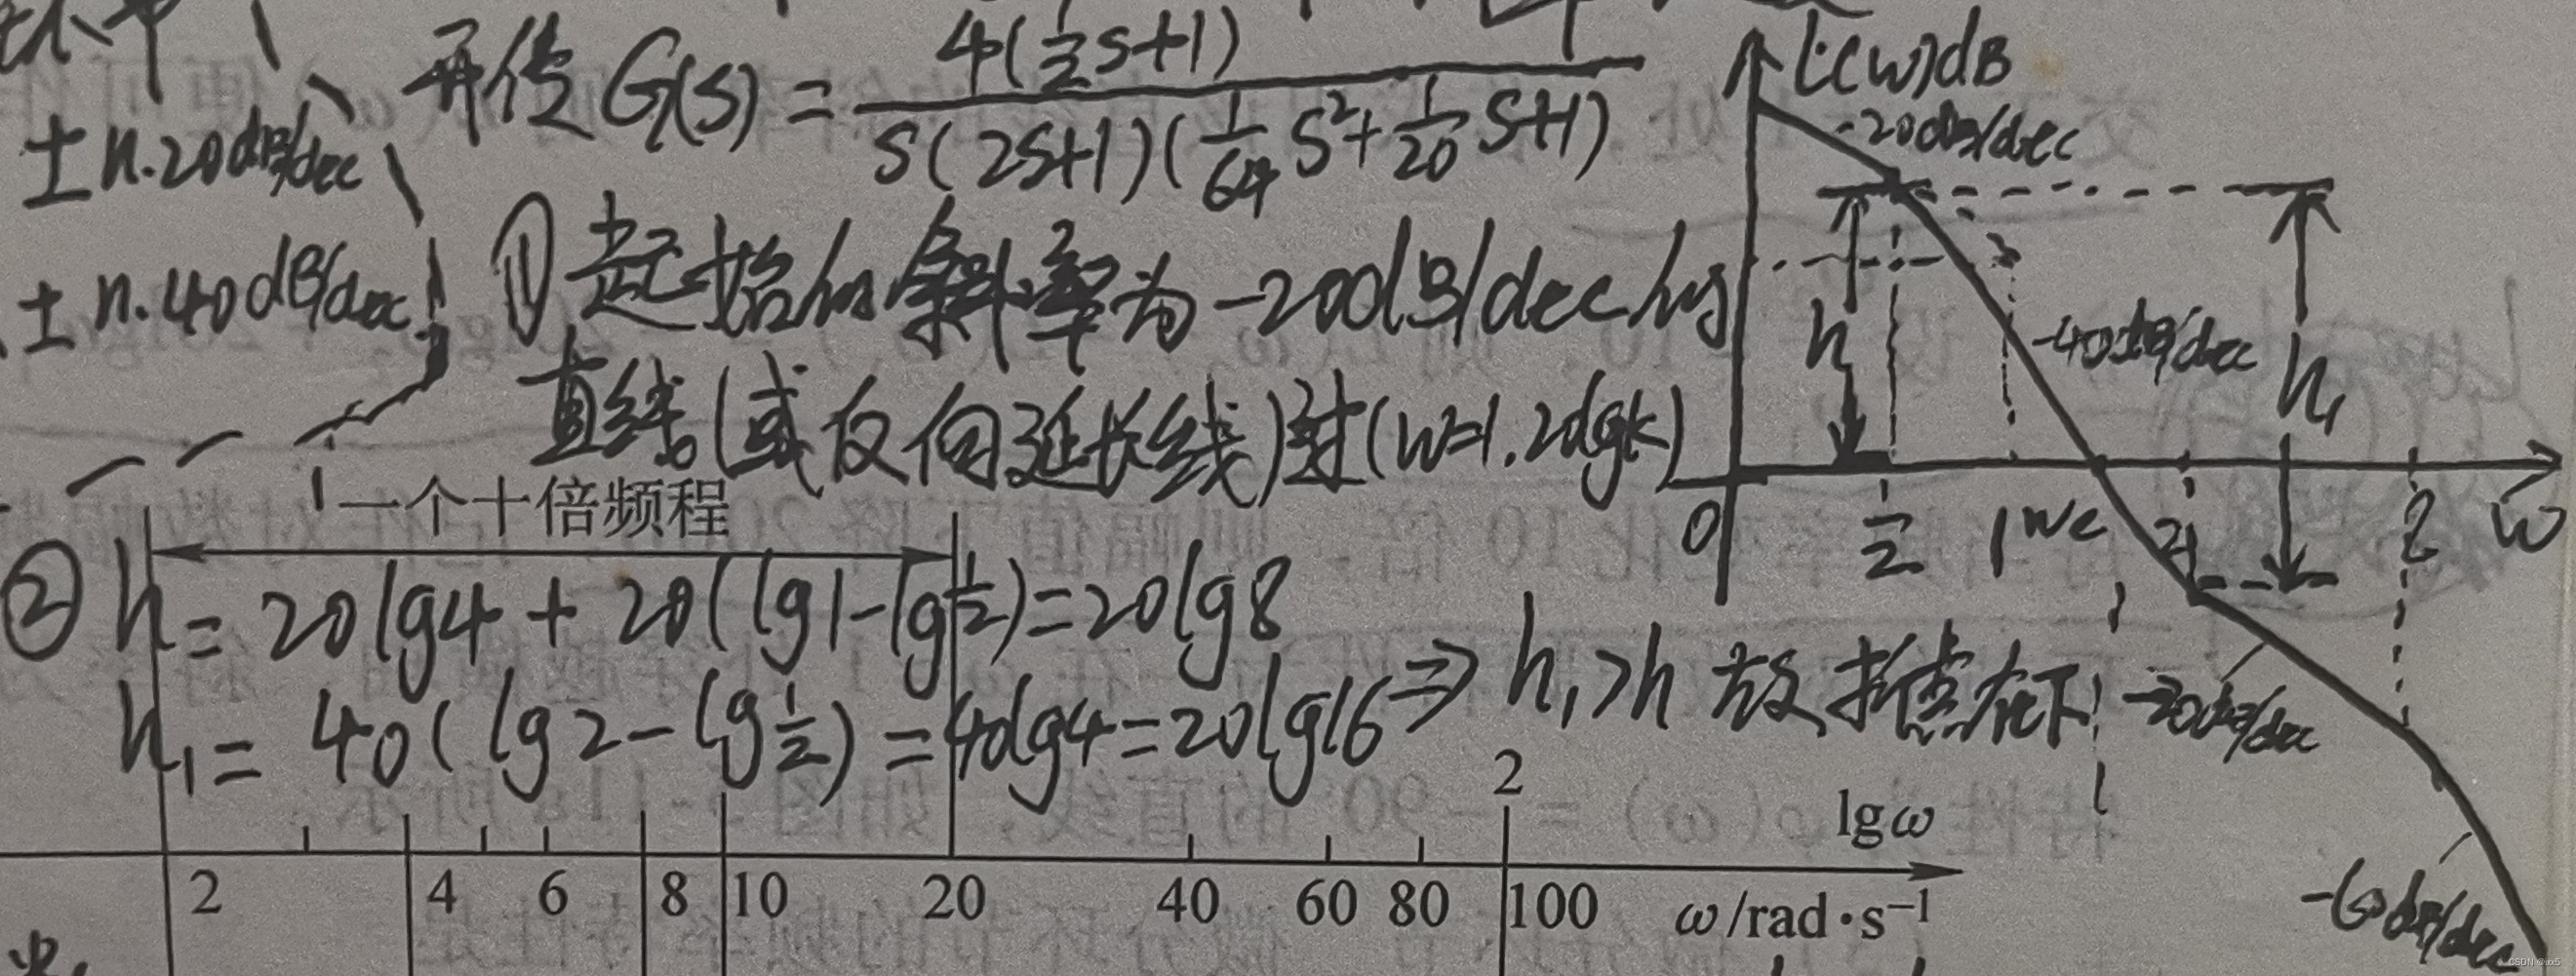 开传 G(s) = 4(1/2 s+1) / s(2s+1)(1/64 s²+1/20 s+1)
± n.20dB/dec
± n.40dB/dec
① 起始的斜率为 -20dB/dec的
直线(或反向延长线)过(w=1.20lgk)
一个十倍频程
② h = 20lg4 + 20(lg1-lg1/2)=20lg8
h₁ = 40(lg2-lg1/2) =40lg4=20lg16 ⇒ h₁>h 故转折点在下
2
lgω
2 4 6 8 10 20 40 60 80 100 ω/rad·s⁻¹
L(w)dB
-20dB/dec
h
-40dB/dec
h₁
0 1/2 1 wc 2 8 w
-20dB/dec
-60dB/dec